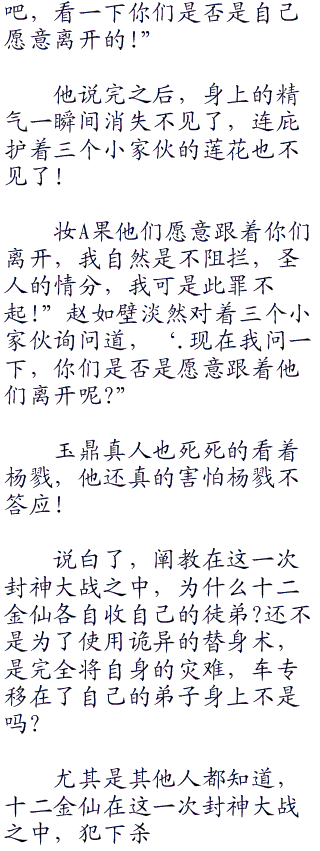 吧，看一下你们是否是自己
愿意离开的！”
他说完之后，身上的精
气一瞬间消失不见了，连庇
护着三个小家伙的莲花也不
见了！
妆A果他们愿意跟着你们
离开，我自然是不阻拦，圣
人的情分，我可是此罪不
起！”赵如壁淡然对着三个小
家伙询问道，‘．现在我问一
下，你们是否是愿意跟着他
们离开呢？”
玉鼎真人也死死的看着
杨戮，他还真的害怕杨戮不
答应！
说白了，阐教在这一次
封神大战之中，为什么十二
金仙各自收自己的徒弟？还不
是为了使用诡异的替身术，
是完全将自身的灾难，车专
移在了自己的弟子身上不是
吗？
尤其是其他人都知道，
十二金仙在这一次封神大战
之中，犯下杀